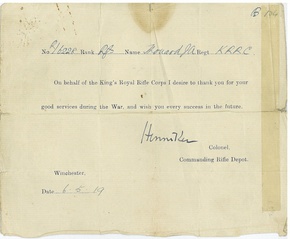 No. Rank Rfn Name Regt K.R.R.C
On behalf of the King's Royal Rifle Corps I desire to thank you for your
good services during the War, and wish you every success in the future.
Henniker
Colonel.
Commanding Rifle Depot.
Winchester.
Date 6-5-19